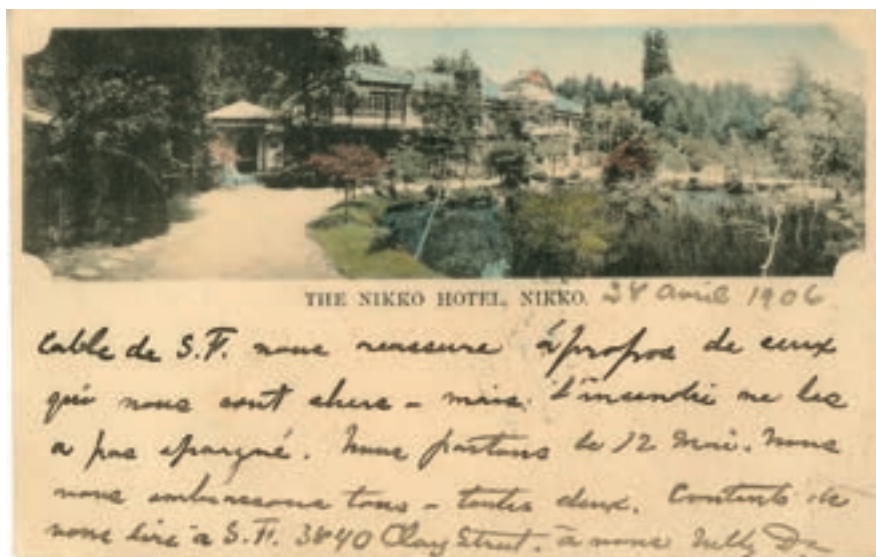 THE NIKKO HOTEL, NIKKO. 28 avril 1906
Cable de S.F. nous reassure à propos de ceux
qui nous sont chers - mais, l'incendie ne les
a pas epargné. Nous partons le 12 Mai. Nous
nous embrassons tous - toutes deux. Contents de
nous lire à S.F. 3840 Clay Street. à nous